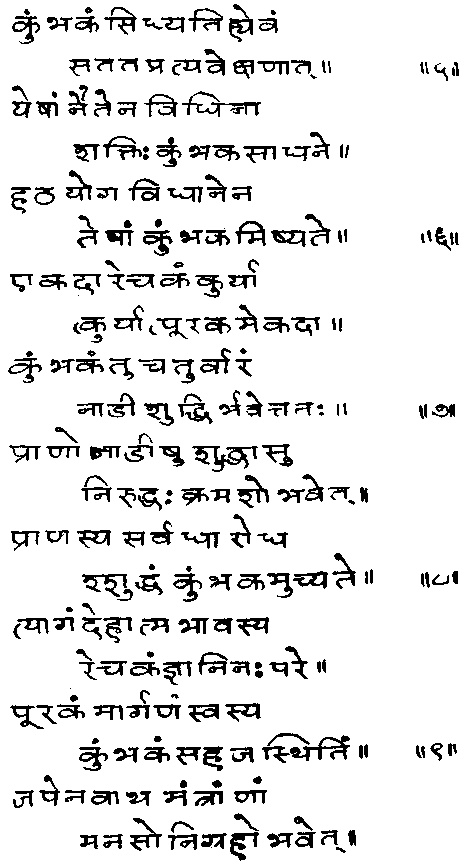 कुंभकं सिध्यति ह्येवं
सतत प्रत्यवेक्षणात् ॥ ॥५॥
येषां नैतेन विधिना
शक्तिः कुंभकसाधने ॥
हठयोग विधानेन
तेषां कुंभकमिष्यते ॥ ॥६॥
एकदा रेचकं कुर्या
त्कुर्यात्पूरकमेकदा ॥
कुंभकं तु चतुर्वारं
नाडीशुद्धिर्भवेत्ततः ॥ ॥७॥
प्राणो नाडीषु शुद्धासु
निरुद्धः क्रमशो भवेत् ॥
प्राणस्य सर्वधा रोध
श्शुद्धं कुंभकमुच्यते ॥ ॥८॥
त्यागं देहात्मभावस्य
रेचकं ज्ञानिनः परे ॥
पूरकं मार्गणं स्वस्य
कुंभकं सहजस्थितिं ॥ ॥९॥
जपेन वाथ मंत्राणां
मनसो निग्रहो भवेत् ॥